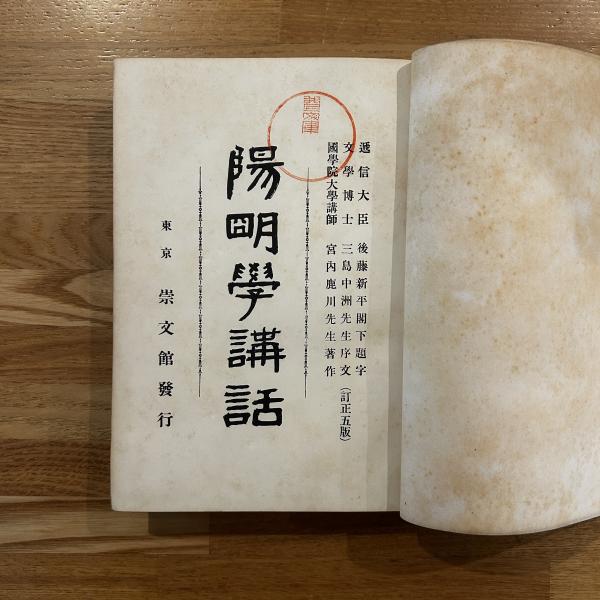 遞信大臣 後藤新平閣下題字
文學博士 三島中洲先生序文
國學院大學講師 宮內鹿川先生著作(訂正五版)
陽明學講話
東京 崇文館發行